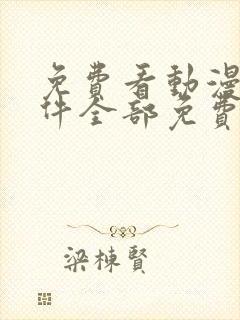 免費看動漫
件全部免費
梁棟賢